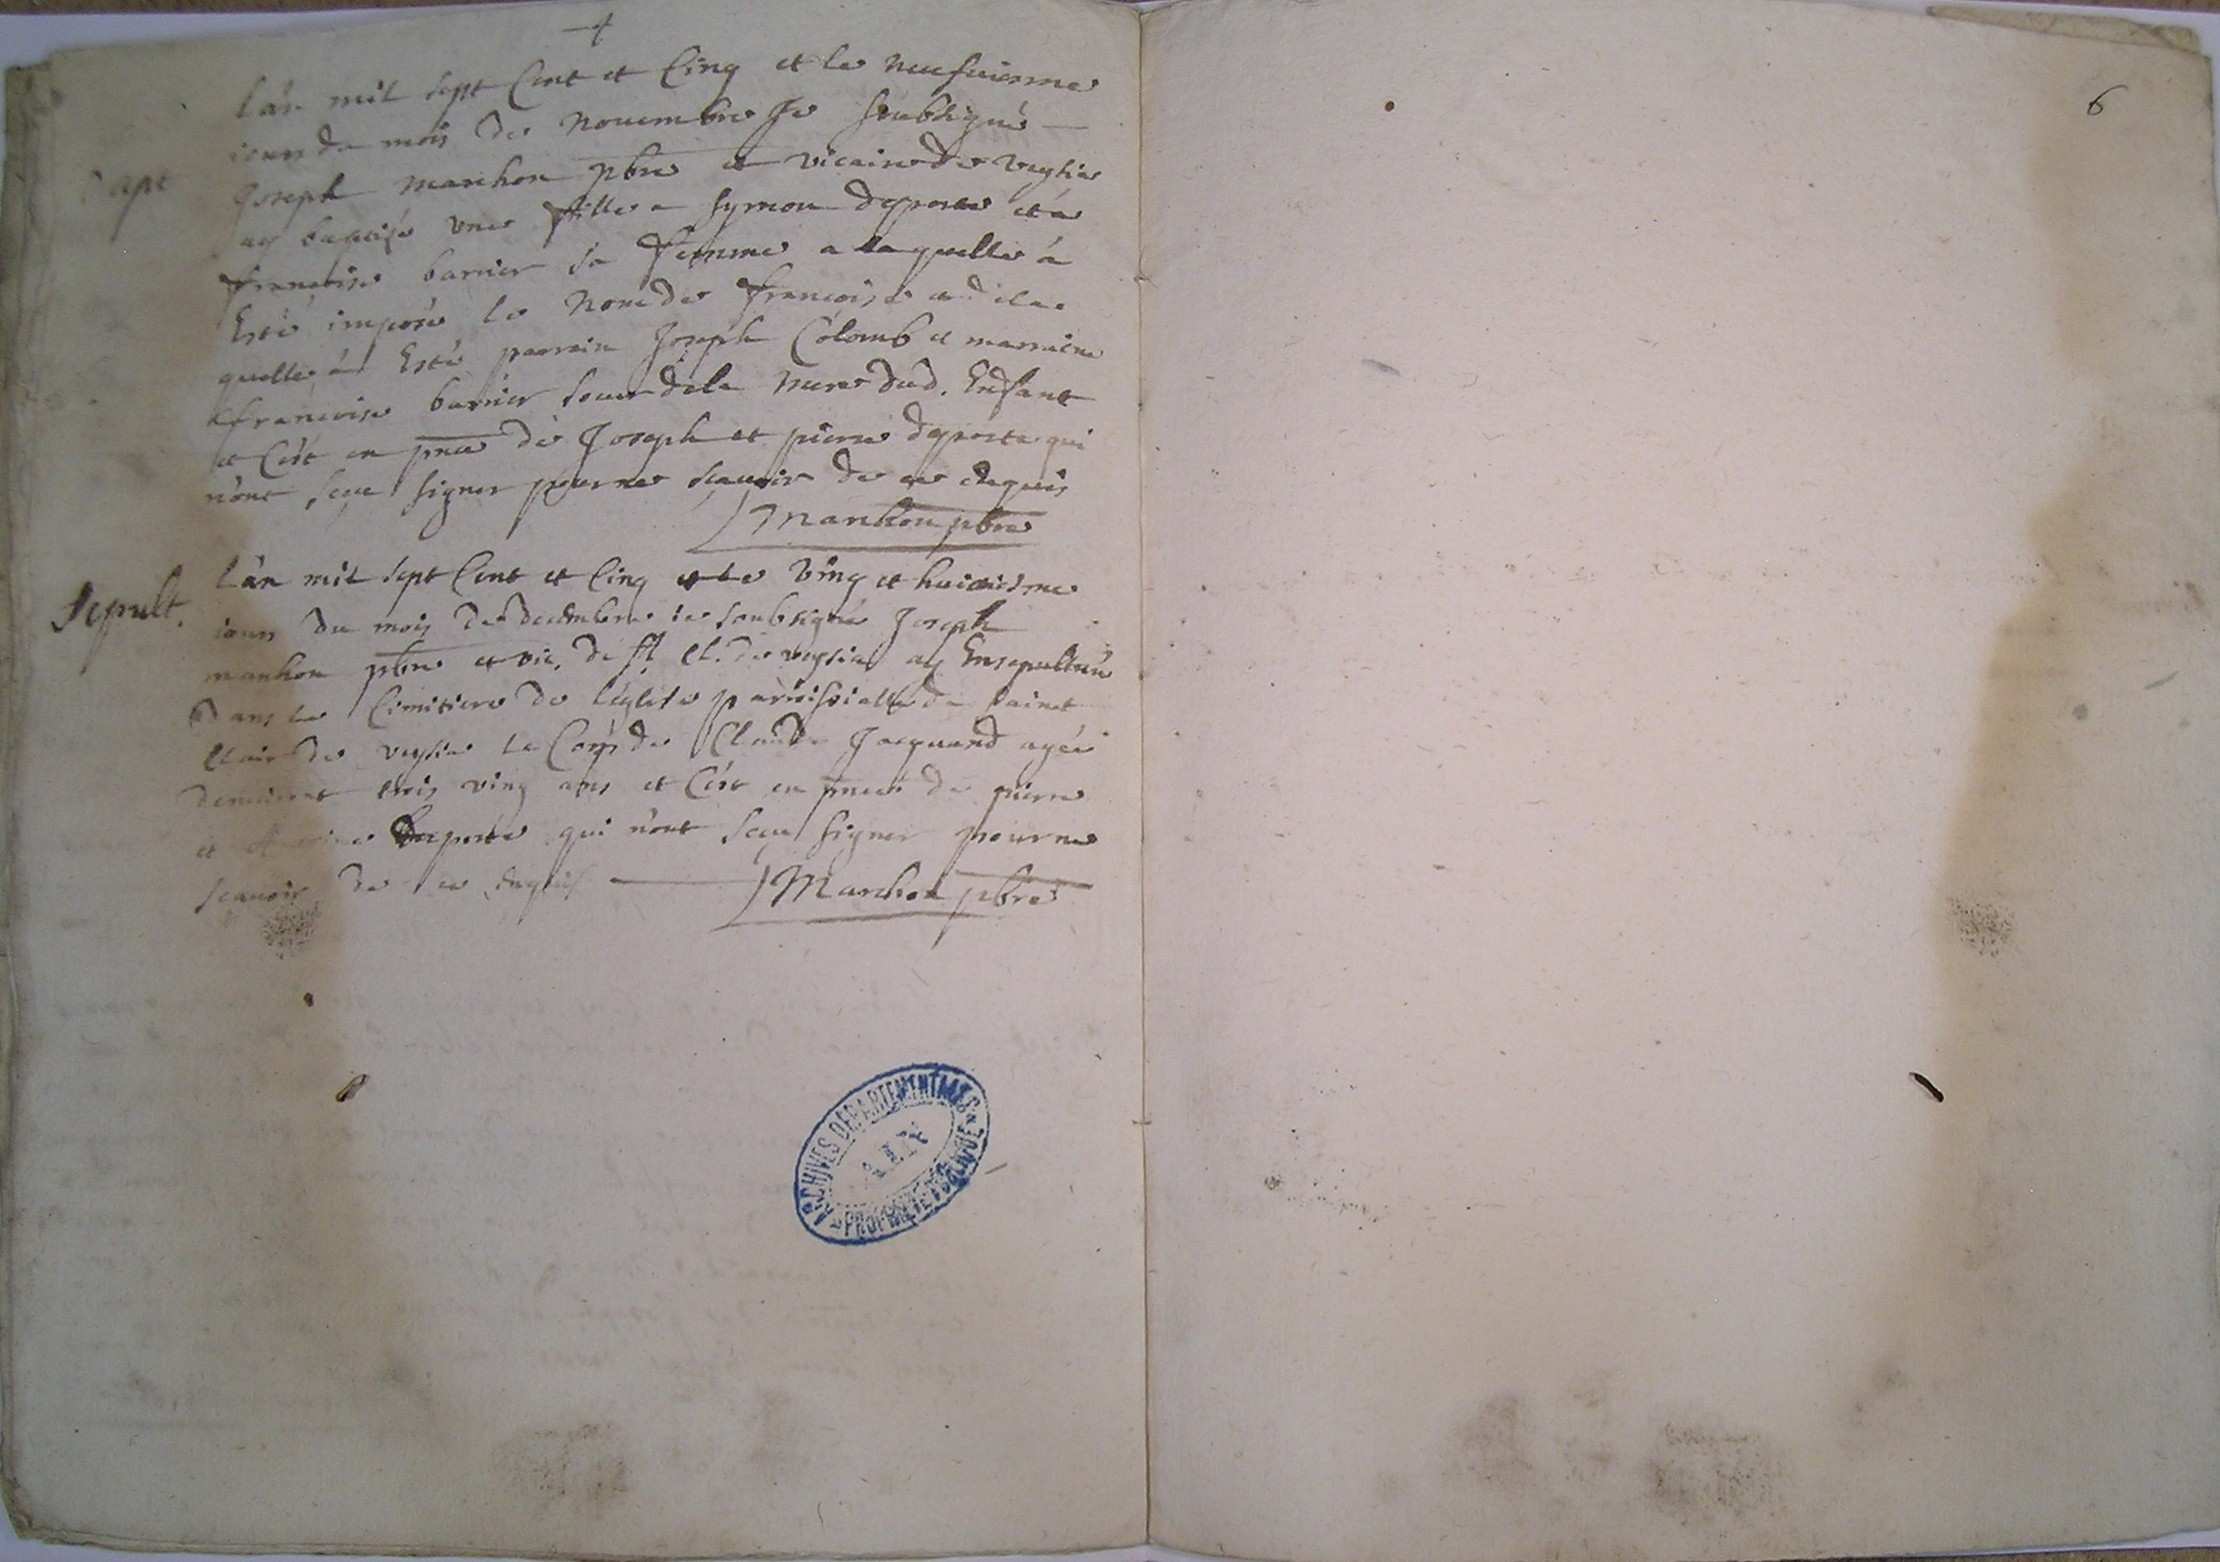 +
Bapt
l'an mil sept Cent et Cinq et le neufviesme
iour du mois de Novembre Je soubsigné
Joseph Marchon pbre et vicaire de veysia
ay baptisé une fille a Symon deporte et a
françoise barnier sa femme a laquelle à
Esté imposé le nom de françoise
quelle à Esté parrain Joseph Colomb et marraine
françoise barnier soeur de la mere dud. Enfant
et C'est en pnce de Joseph et pierre deporte qui
n'ont sceu signer pour ne scauoir de ce enquis
Marchon pbre
Sepult.
l'an mil sept Cent et Cinq et le ving et huictiesme
iour du mois de decembre ie soubsigné Joseph
marchon pbre et vic. de st Cl. de veysia ay Ensepulturé
Dans le Cimitiere de l'église parroissialle de sainct
Clair de veysia le Corps de Claude Jacquand agée
denuiront trois ving ans et C'est en pnce de pierre
et deporte qui n'ont sceu signer pour ne
scauoir de ce enquis
Marchon pbre
ARCHIVES DEPARTEMENTALES
AIN
PROPRIETE PUBLIQUE
6